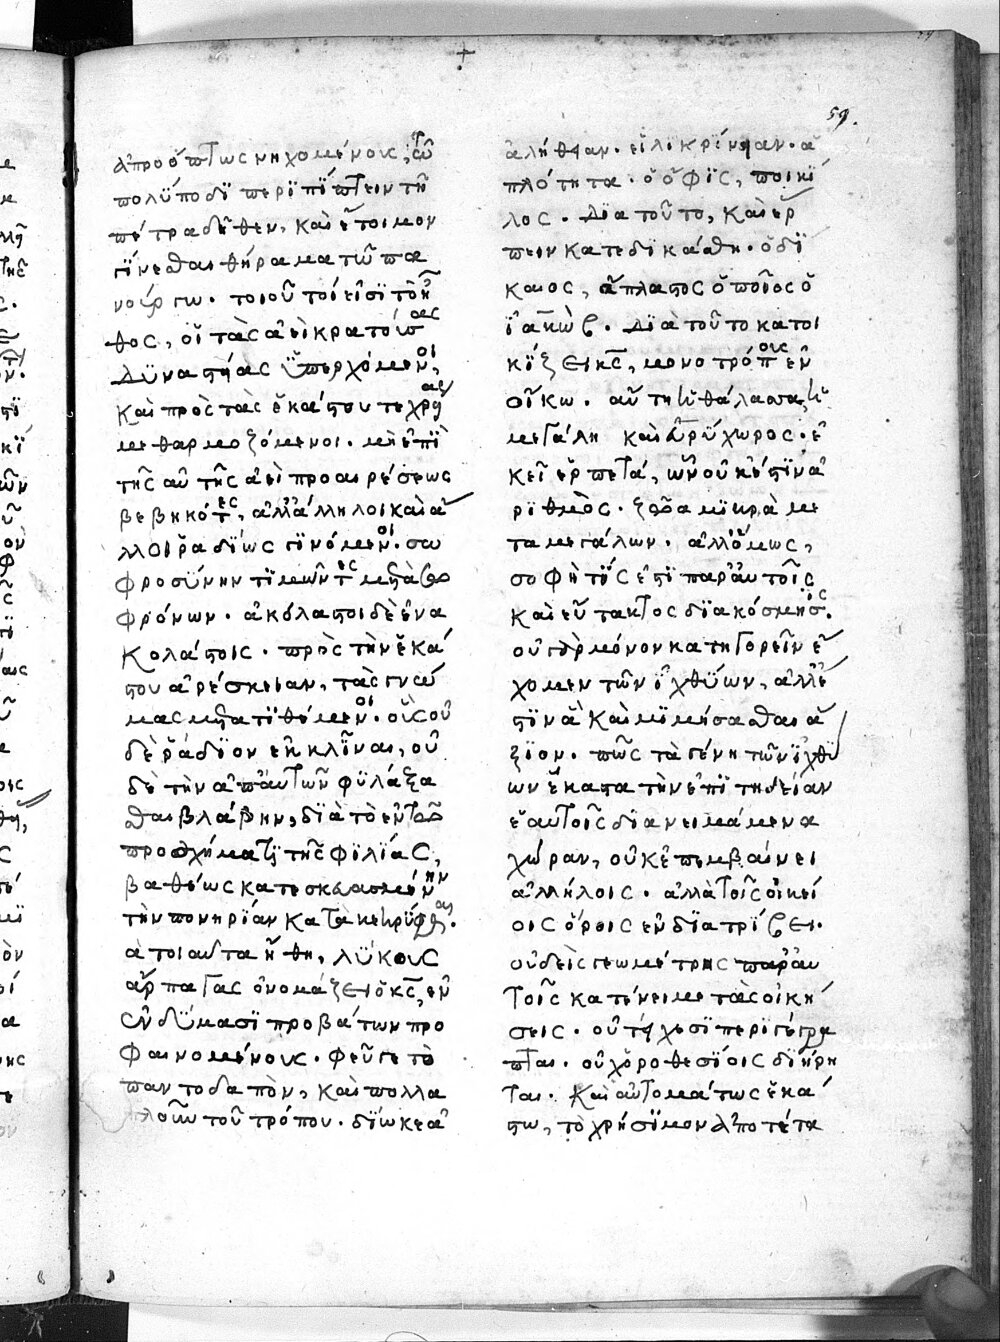 59.
ἀπροόπτως νηχομένοις, τῶ
πολύποδι περιπίπτειν τῆ
πέτρα δῆθεν, καὶ ἕτοιμον
γίνεσθαι θήραμα τῶ πα
νούργω. τοιοῦτοί εἰσι τὸ ἦ
θος, οἱ τὰς ἀεὶ κρατούσας
δυναστείας ὑπερχόμενοι,
καὶ πρὸς τὰς ἑκάστου τε χρείας
μεθαρμοζόμενοι. μὴ ἐπὶ
τῆς αὐτῆς ἀεὶ προαιρέσεως
βεβηκότες, ἀλλ' ἄλλοι καὶ ἄ
λλοι ῥαδίως γινόμενοι. σω
φροσύνην τιμῶντες μετὰ σω
φρόνων. ἀκόλαστοι δὲ ἐν ἀ
κολάστοις. πρὸς τὴν ἑκά
στου ἀρέσκειαν, τὰς γνώ
μας μετατιθέμενοι. οἷς οὐ
δὲ ῥάδιον ἐκκλῖναι, οὐ
δὲ τὴν ἀπ' αὐτῶν φυλάξα
σθαι βλάβην, διὰ τὸ ἐν τῶ
προσχήματι τῆς φιλίας,
βαθέως κατεσκευασμένην
τὴν πονηρίαν κατακεκρύφθαι.
τὰ τοιαῦτα ἤθη, λύκους
ἅρπαγας ὀνομάζει ὁ κς, ἐν
ἐνδύμασι προβάτων προ
φαινομένους. φεῦγε τὸ
παντοδαπὸν, καὶ πολλα
πλοῦν τοῦ τρόπου. δίωκε ἀ
ἀλήθειαν. εἰλικρίνειαν. ἁ
πλότητα. ὁ ὄφις, ποικί
λος. διὰ τοῦτο, καὶ ἕρ
πειν κατεδικάσθη. ὁ δί
καιος, ἄπλαστος ὁποῖος ὁ
ἰακώβ. διὰ τοῦτο κατοι
κίζει κς, μονοτρόπους ἐν
οἴκω. αὕτη ἡ θάλασσα ἡ
μεγάλη καὶ εὐρύχωρος. ἐ
κεῖ ἑρπετά, ὧν οὐκ ἔστιν ἀ
ριθμὸς. ζῶα μικρὰ με
τὰ μεγάλων. ἀλλ' ὅμως,
σοφή τις ἐστὶ παρ' αὐτοῖς
καὶ εὔτακτος διακόσμησις.
οὐ γὰρ μόνον κατηγορεῖν ἔ
χομεν τῶν ἰχθύων, ἀλλ' ἔ
στιν ἃ καὶ μιμήσασθαι ἄ
ξιον. πῶς τὰ γένη τῶν ἰχθύ
ων ἕκαστα τὴν ἐπιτηδείαν
ἑαυτοῖς διανειμάμενα
χώραν, οὐκ ἐπεμβαίνει
ἀλλήλοις. ἀλλὰ τοῖς οἰκεί
οις ὅροις ἐνδιατρίβει.
οὐδεὶς γεωμέτρης παρ' αὐ
τοῖς κατένειμε τὰς οἰκή
σεις. οὐ τείχεσι περιγέγρα
πται. οὐχ ὁροθεσίοις διήρη
ται. καὶ αὐτομάτως ἑκά
στω, τὸ χρήσιμον ἀποτέτα